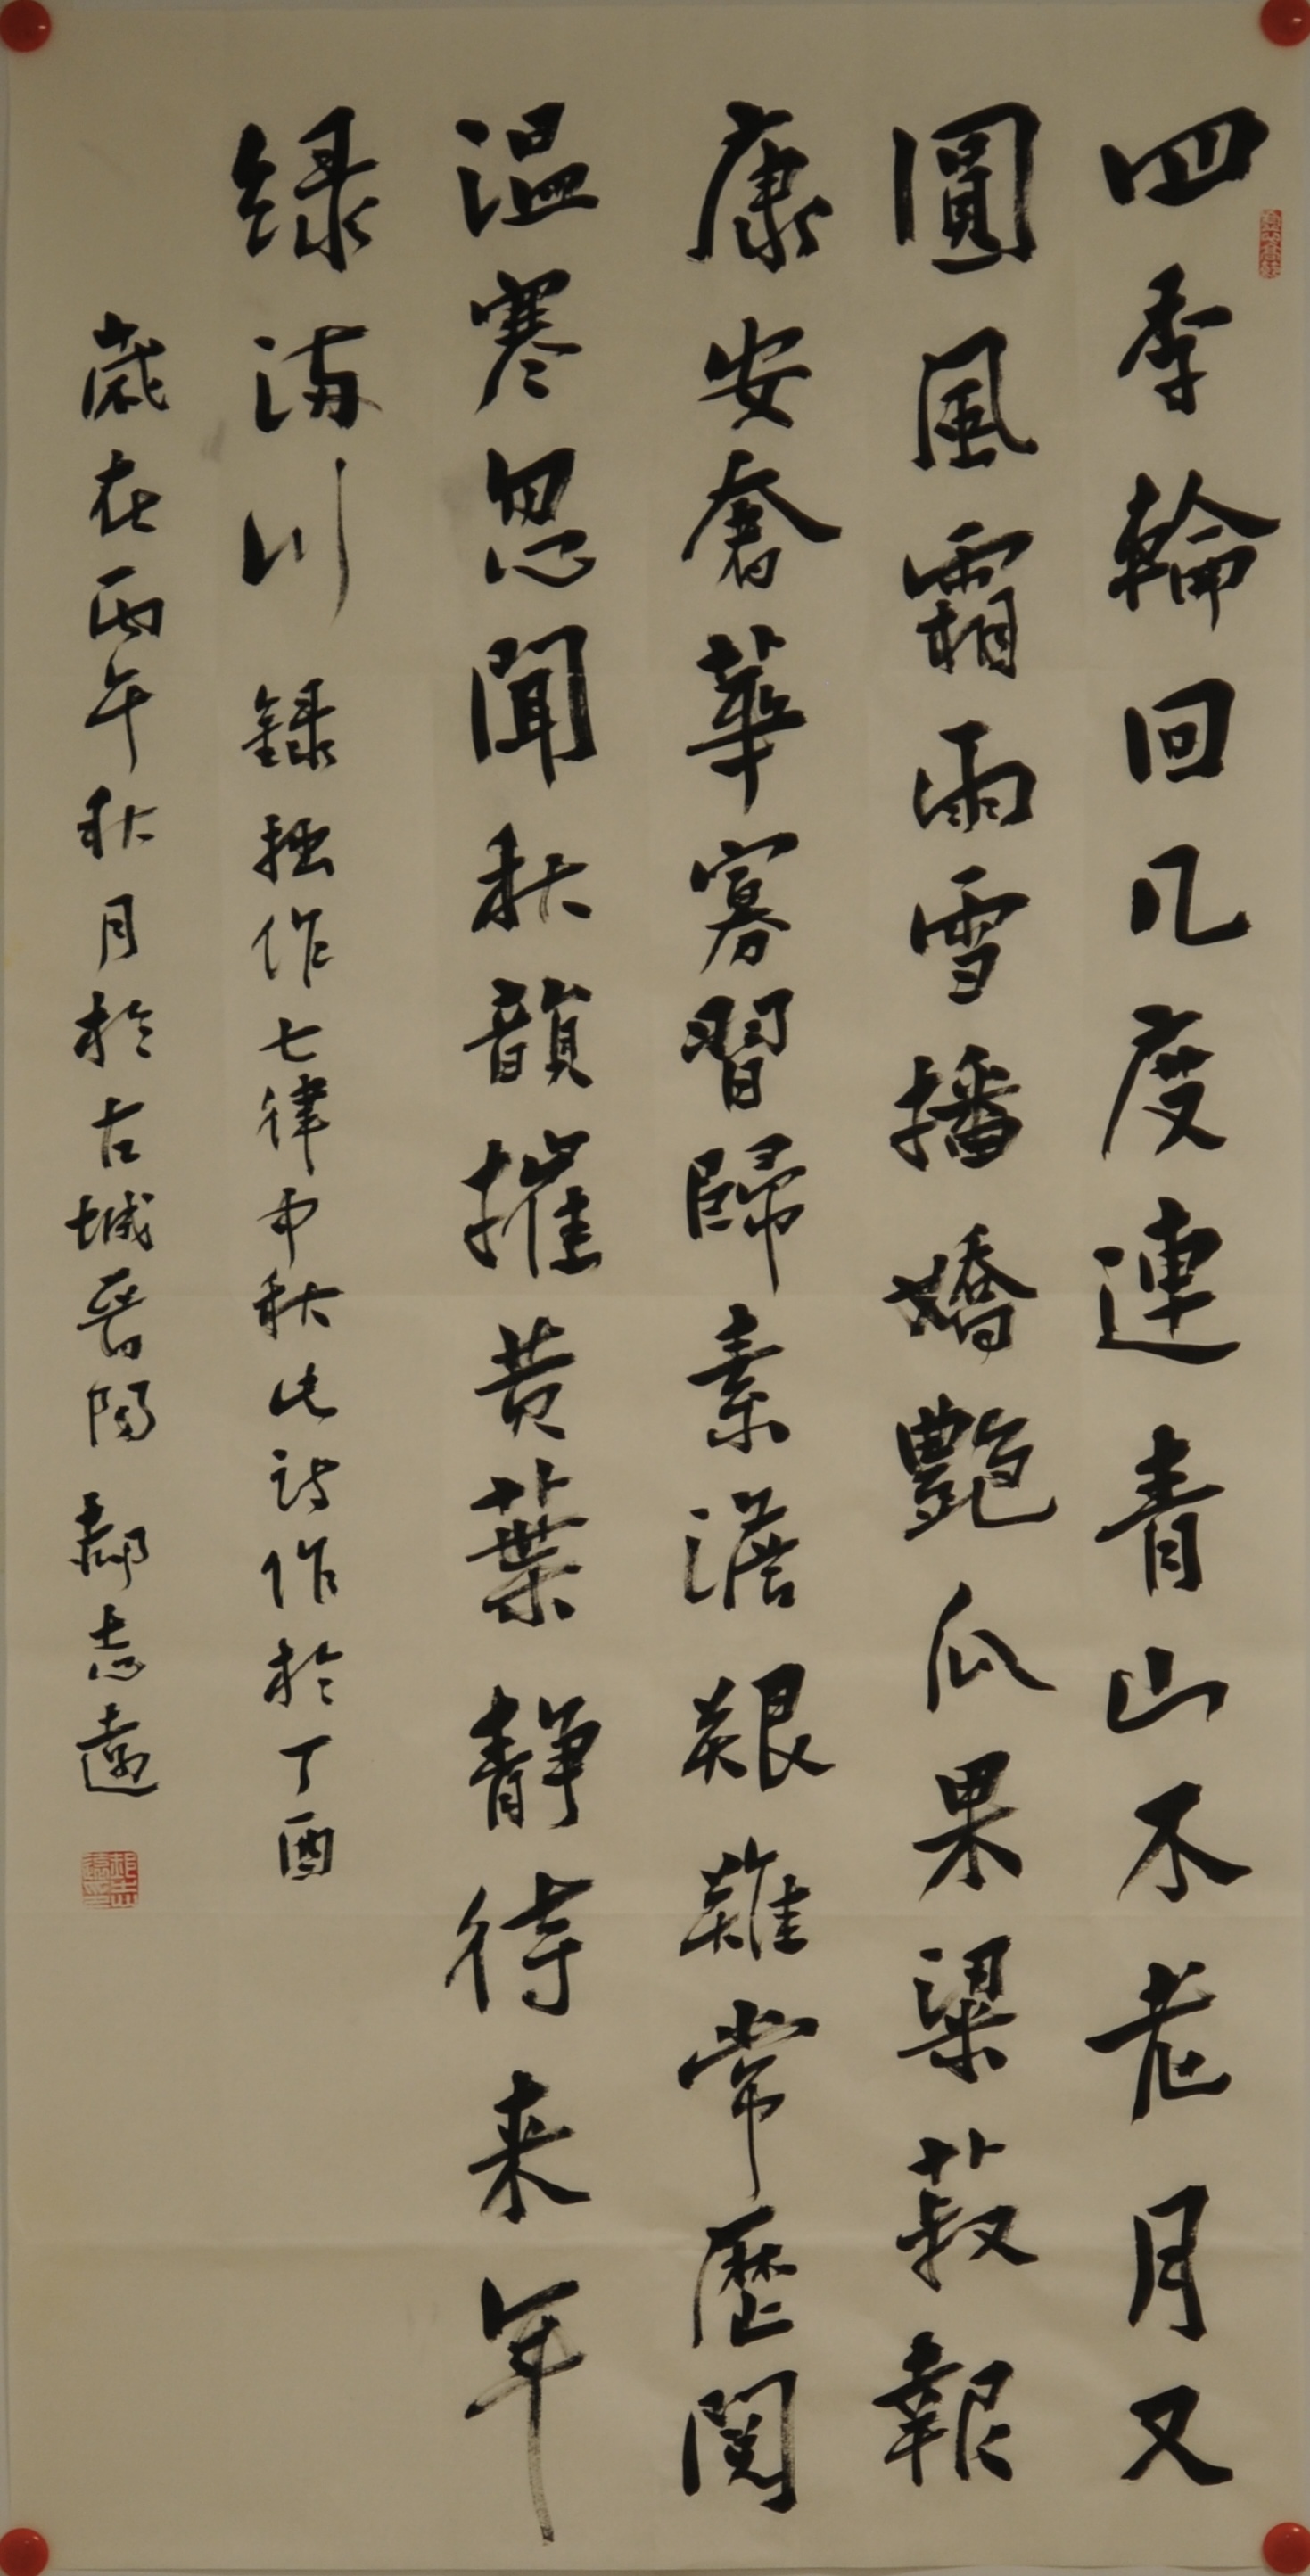 四季輪回几度連青山不老月又
圓風霜雨雪播嬌艷瓜果粱菽報
康安奢華寡習歸素澹艱難常歷閱
温寒忽聞秋韻摧黄葉靜待来年
緑满川 録拙作七律中秋此詩作於丁酉
歲在丙午秋月於古城晋陽郝志遠